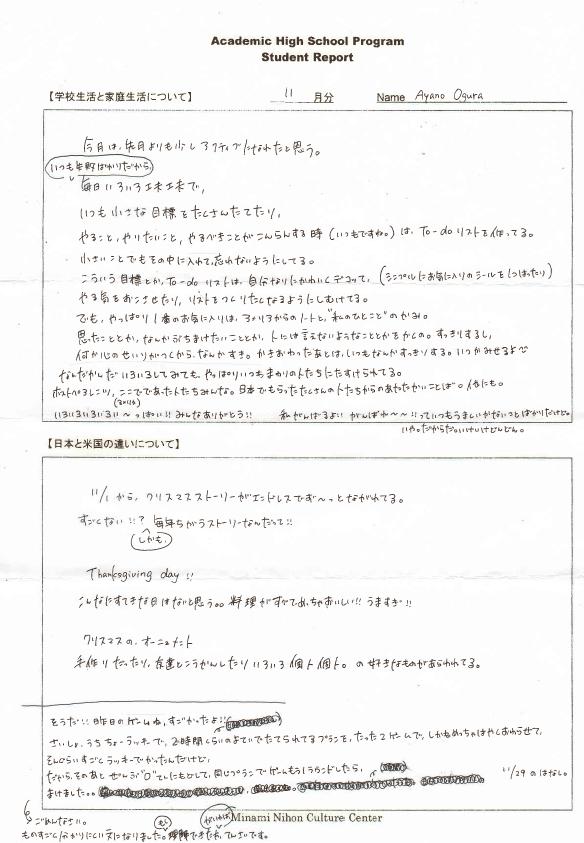 Academic High School Program
Student Report
【学校生活と家庭生活について】 11 月分 Name Ayano Ogura
今月は、先月よりも少しアクティブになれたと思う。
いつも失敗ばかりだから、
毎日いろいろ工夫工夫で、
いつも小さな目標をたくさんたてたり、
やること、やりたいこと、やるべきことがこんらんする時(いつもですね。)は、To-doリストを作ってる。
小さいことでもその中に入れて、忘れないようにしてる。
こういう目標とか、To-doリストは、自分なりにかわいくデコって、(シンプルにお気に入りのシールをはったり)
やる気をおこさせたり、リストをつくりたくなるようにしむけてる。
でも、やっぱり1番のお気に入りは、ノートと、"私のひとこと"のかみ。
思ったこととか、なんかぶちまけたいこととか、人には言えないようなこととかをかくの。すっきりするし、
何か心のせいりがつくから、なんかすき。かきおわったあとは、いつもなんかすっきりする。いつかみせるよ
なんだかんだいろいろしてみても、やっぱりいつもまわりの人たちにたすけられてる。
ここでであった人たちみんな。日本でもらったたくさんの人たちからのあたたかいことば。他にも。
いろいろいろいろい〜っぱい!!みんなありがとう!! 私がんばるよ!! がんばれ〜〜!!っていつもうまくいかないことばかりだけど。
いや。だからだ。いけいけどんどん。
【日本と米国の違いについて】
11/1から、クリスマスストーリーがエンドレスでず〜っとながれてる。
すごくない!!? 毎年ちがうストーリーなんだって!!
しかも、
Thanksgiving day!!
こんなにすてきな日はないと思う。。料理がすべてめっちゃおいしい!! うますぎ!!
クリスマスの、オーナメント
手作りだったり、友達とこうかんしたりいろいろ個々個々。の好きなものがあらわれてる。
そうだ!! 昨日のゲームね、すごかったよ!!
さいしょ、うちちょーラッキーで、2時間くらいのよていでたてられてるプランを、たった2ゲームで、しかもめちゃはやくおわらせて、
そんくらいすごくラッキーでかったんだけど、
だから、そのあと ゼロ"0"てんにもどして、同じプランでゲームもう1ラウンドしたら、
まけました。。 11/29のはなし。
ごめんなさい。
ものすごく分かりにくい文になりました。 できたら、てんさいです。
Minami Nihon Culture Center